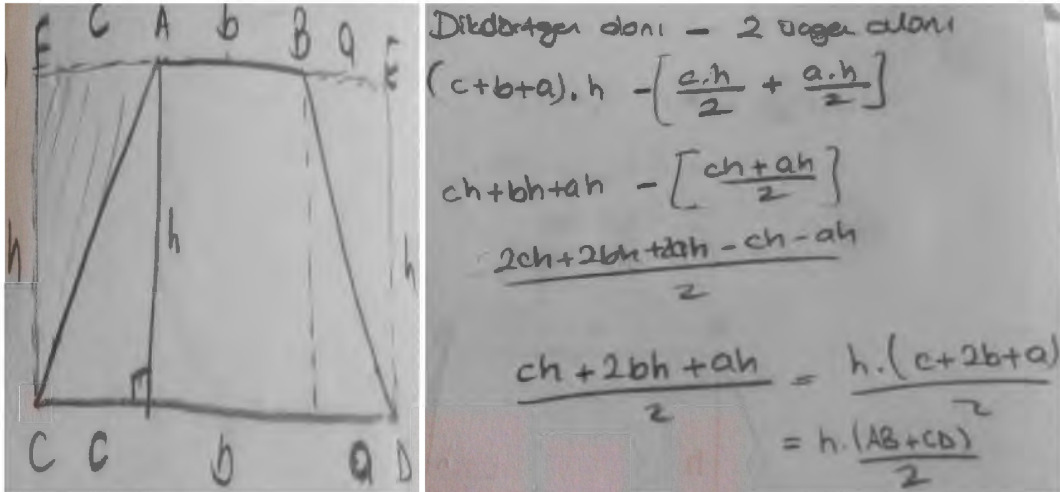 F C A b B a E
h h h
C C b a D
Dikdörtgen alanı - 2 üçgen alanı
(c+b+a).h - [c.h/2 + a.h/2]
ch+bh+ah - [ch+ah/2]
2ch+2bh+2ah-ch-ah/2
ch+2bh+ah/2 = h.(c+2b+a)/2
= h.(AB+CD)/2